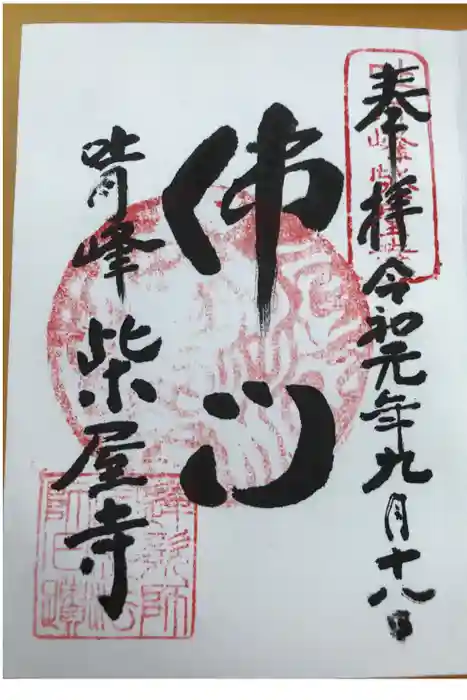 奉拝 令和元年九月十八日
佛心
吐月峰 柴屋寺